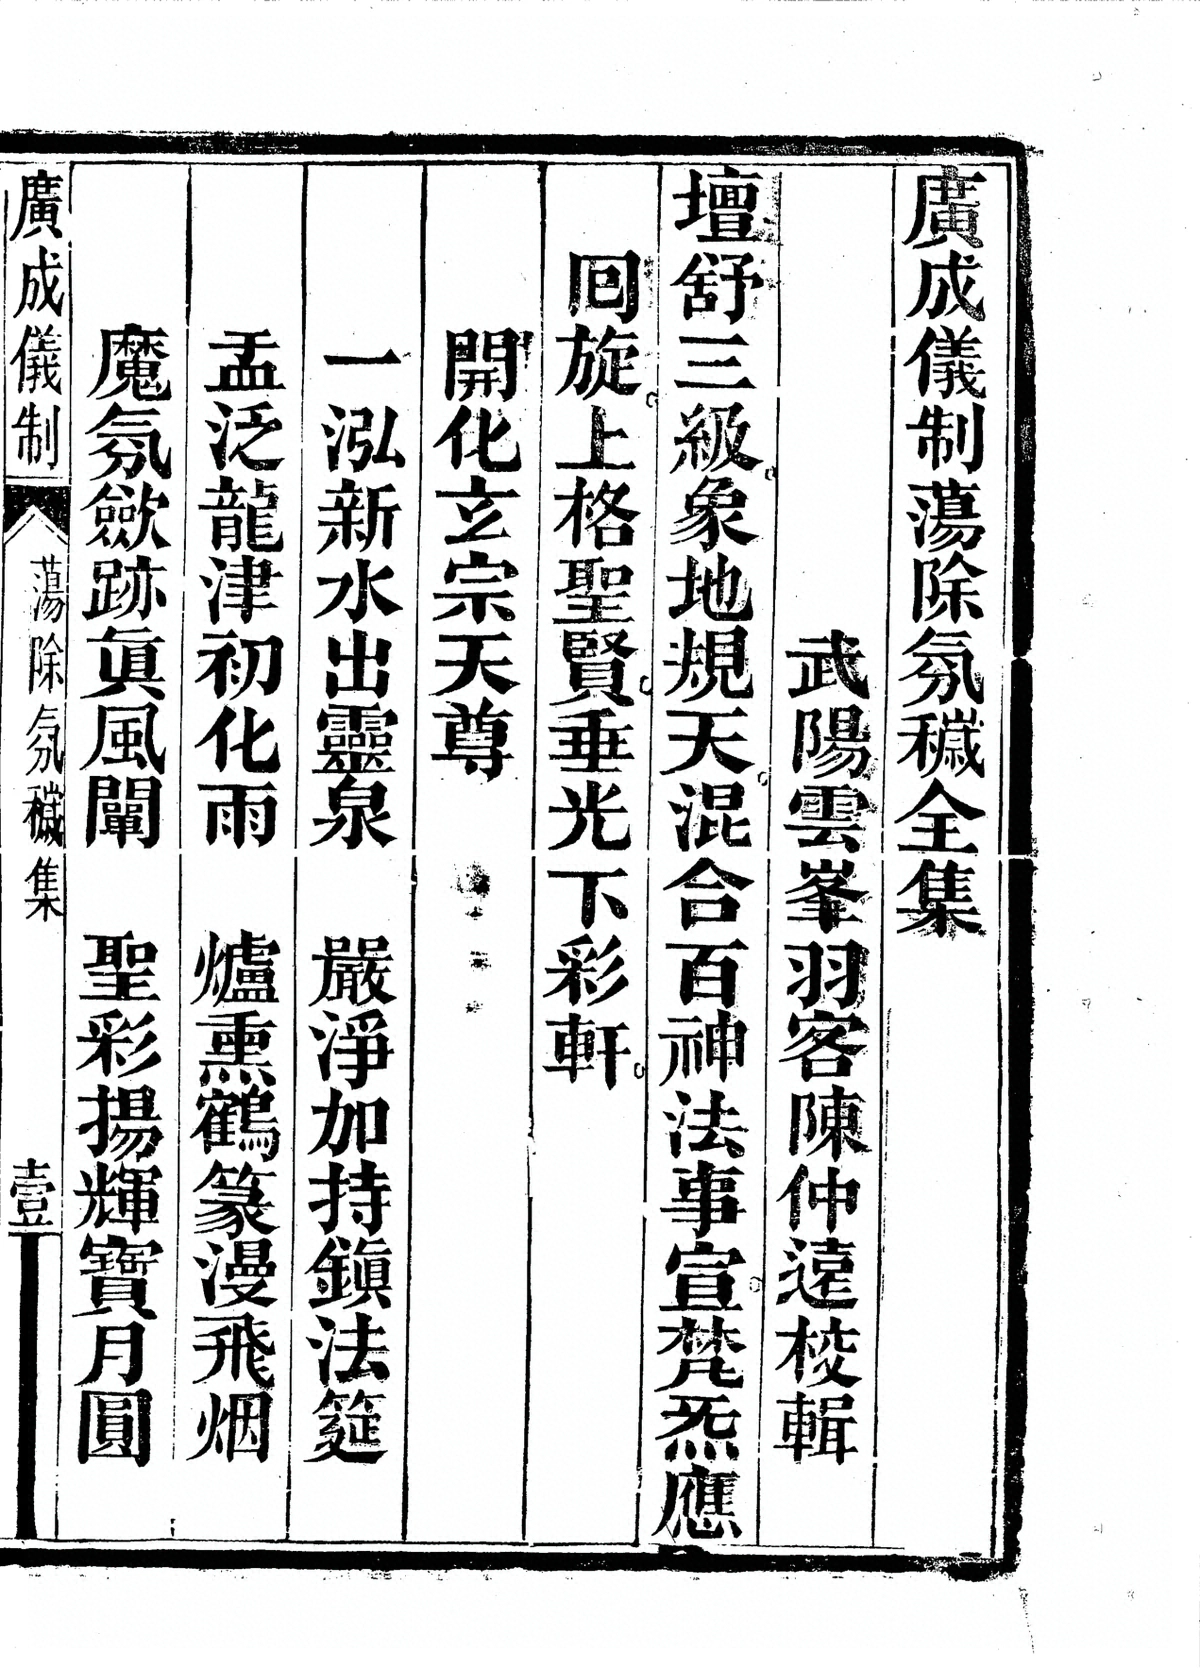 廣成儀制蕩除氛穢全集
武陽雲峯羽客陳仲遠校輯
壇舒三級。象地規天。混合百神法事宣。梵炁應
回旋。上格聖賢。垂光下彩軒。
開化玄宗天尊
一泓新水出靈泉　嚴淨加持鎮法筵
盂泛龍津初化雨　爐熏鶴篆漫飛烟
魔氛歛跡眞風闡　聖彩揚輝寶月圓
廣成儀制　蕩除氛穢集　壹